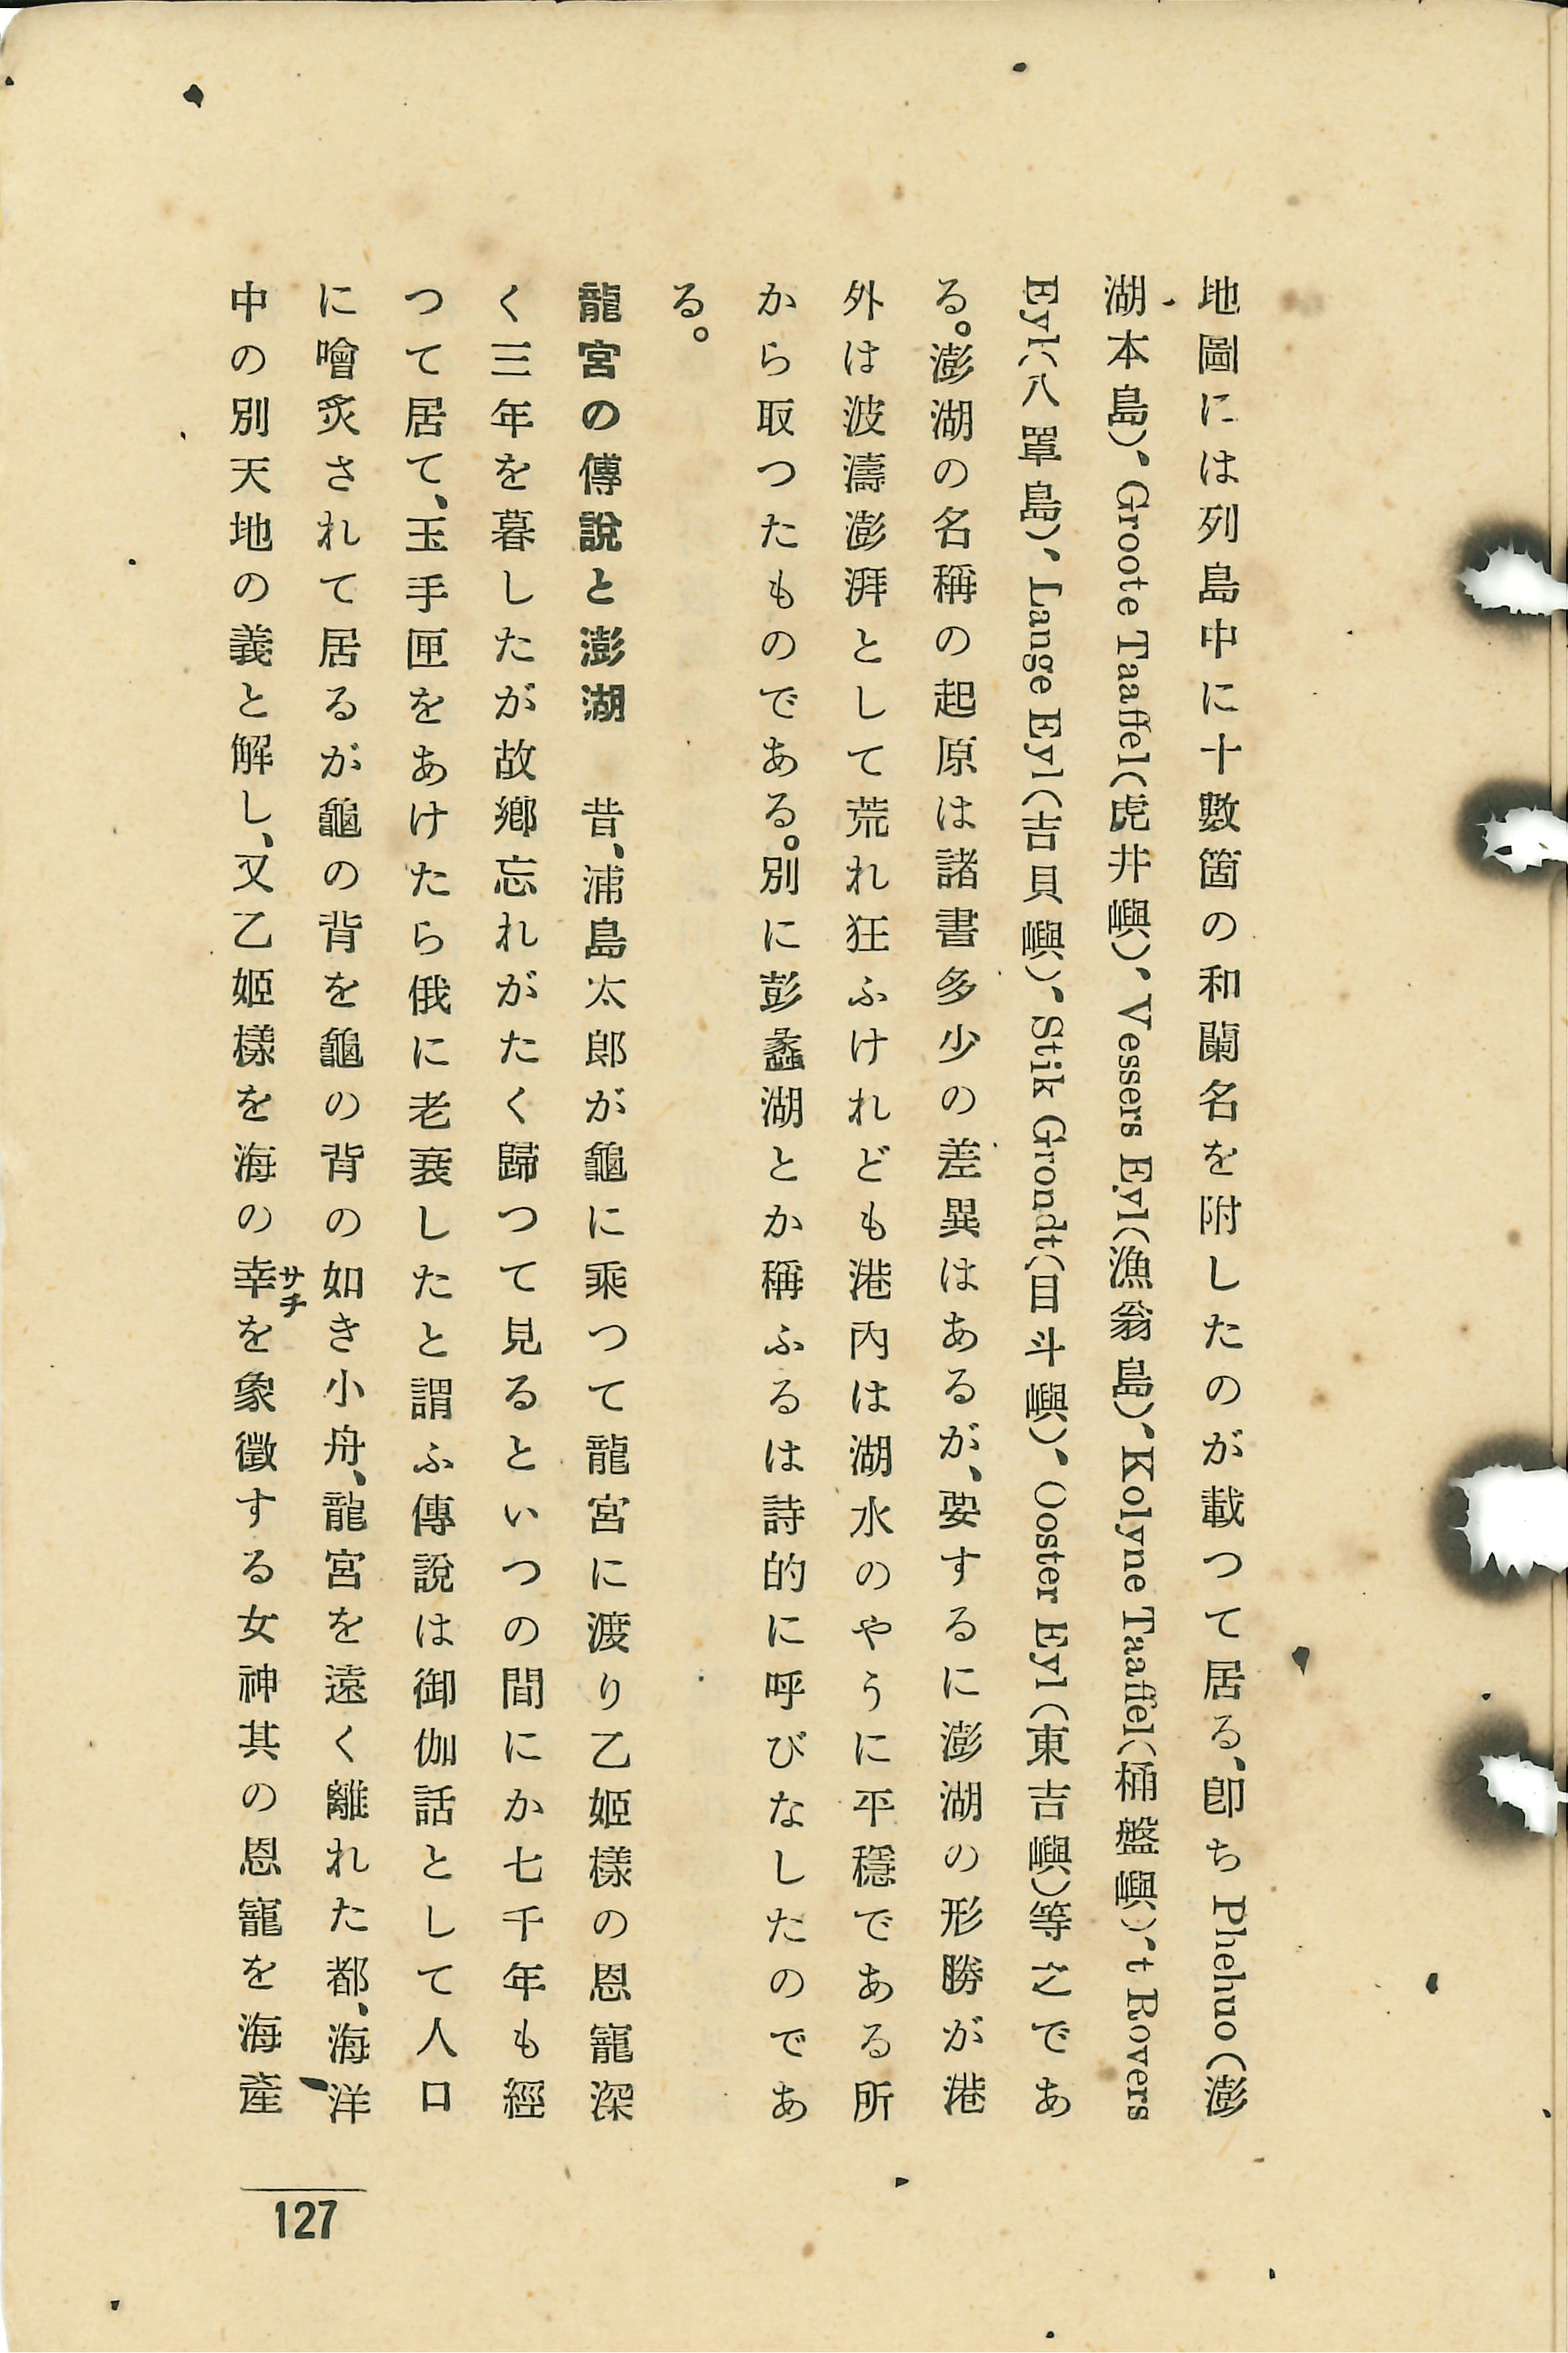 地圖には列島中に十數箇の和蘭名を附したのが載つて居る、卽ち Phehuo(澎
湖本島)、Groote Taaffel(虎井嶼)、Vessers Eyl(漁翁島)、Kolyne Taaffel(桶盤嶼)、t Rovers
Eyl(八罩島)、Lange Eyl(吉貝嶼)、Stik Grondt(目斗嶼)、Ooster Eyl(東吉嶼)等之であ
る。澎湖の名稱の起原は諸書多少の差異はあるが、要するに澎湖の形勝が港
外は波濤澎湃として荒れ狂ふけれども港內は湖水のやうに平穩である所
から取つたものである。別に彭蠡湖とか稱ふるは詩的に呼びなしたのであ
る。
龍宮の傳說と澎湖　昔、浦島太郎が龜に乘つて龍宮に渡り乙姬樣の恩寵深
く三年を暮したが故鄕忘れがたく歸つて見るといつの間にか七千年も經
つて居て、玉手匣をあけたら俄に老衰したと謂ふ傳說は御伽話として人口
に噲炙されて居るが龜の背を龜の背の如き小舟、龍宮を遠く離れた都、海洋
中の別天地の義と解し、又乙姬樣を海の幸サチを象徵する女神其の恩寵を海產
127